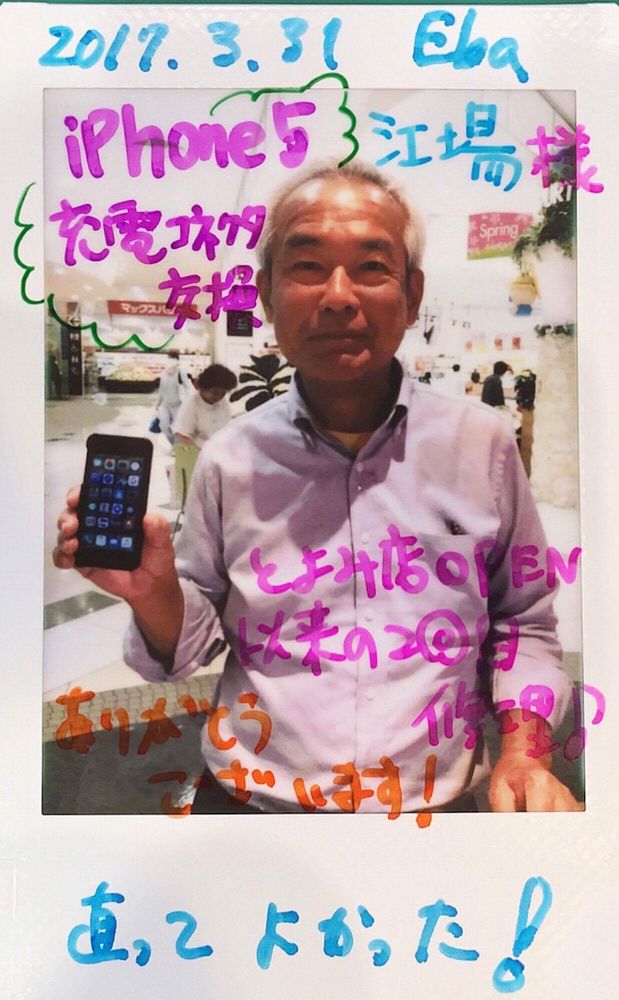 2017. 3. 31 Eba
iPhone5 江場様
充電コネクタ
交換
Spring
マックスバ
とよみ店OPEN
以来の2回目
修理♪
ありがとう
ございます!
直ってよかった!